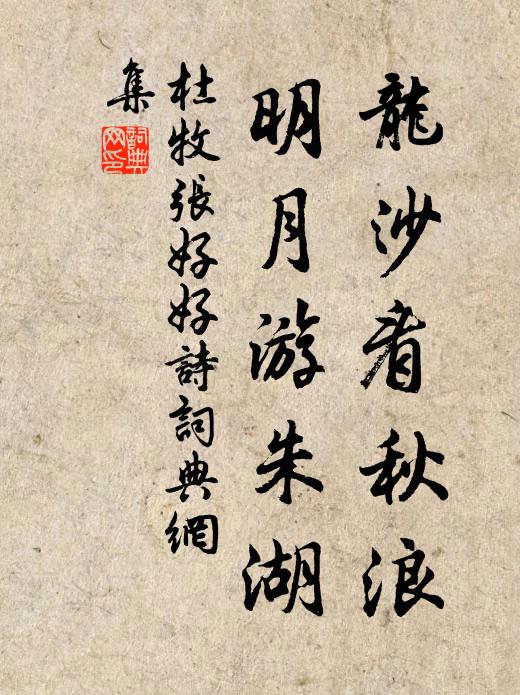 龍沙看秋浪
明月游朱湖
杜牧張好好詩詞典網
集
詞典
网印